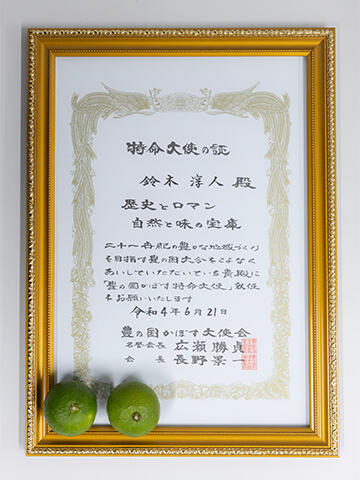 特命大使の証
鈴木淳人殿
歴史とロマン
自然と味の宝庫
二十一世紀の豊かな地域づくり
を目指す豊の国大分をこよなく
あいしていただいている貴殿に
「豊の国かぼす特命大使」就任
をお願いいたします
令和4年6月21日
豊の国かぼす大使会
名誉会長 広瀬勝貞
会長 長野景一